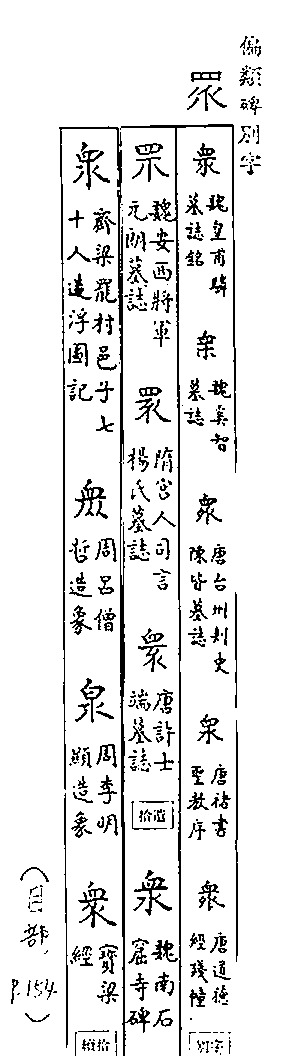 偏類碑別字
眾
眾
魏皇甫驎
墓誌銘
魏奚智
墓誌
眾
唐台州刺史
陳皆墓誌
眾
唐褚書
聖教序
眾
唐道德
經殘幢
別字
魏安西將軍
元朗墓誌
隋宮人司言
楊氏墓誌
唐許士
端墓誌
拾遺
眾
魏南石
窟寺碑
眾
齊梁罷村邑子七
十人造浮圖記
眾
周呂僧
哲造象
周李明
顯造象
眾
寶梁
經
拾續
(目部, P.154)